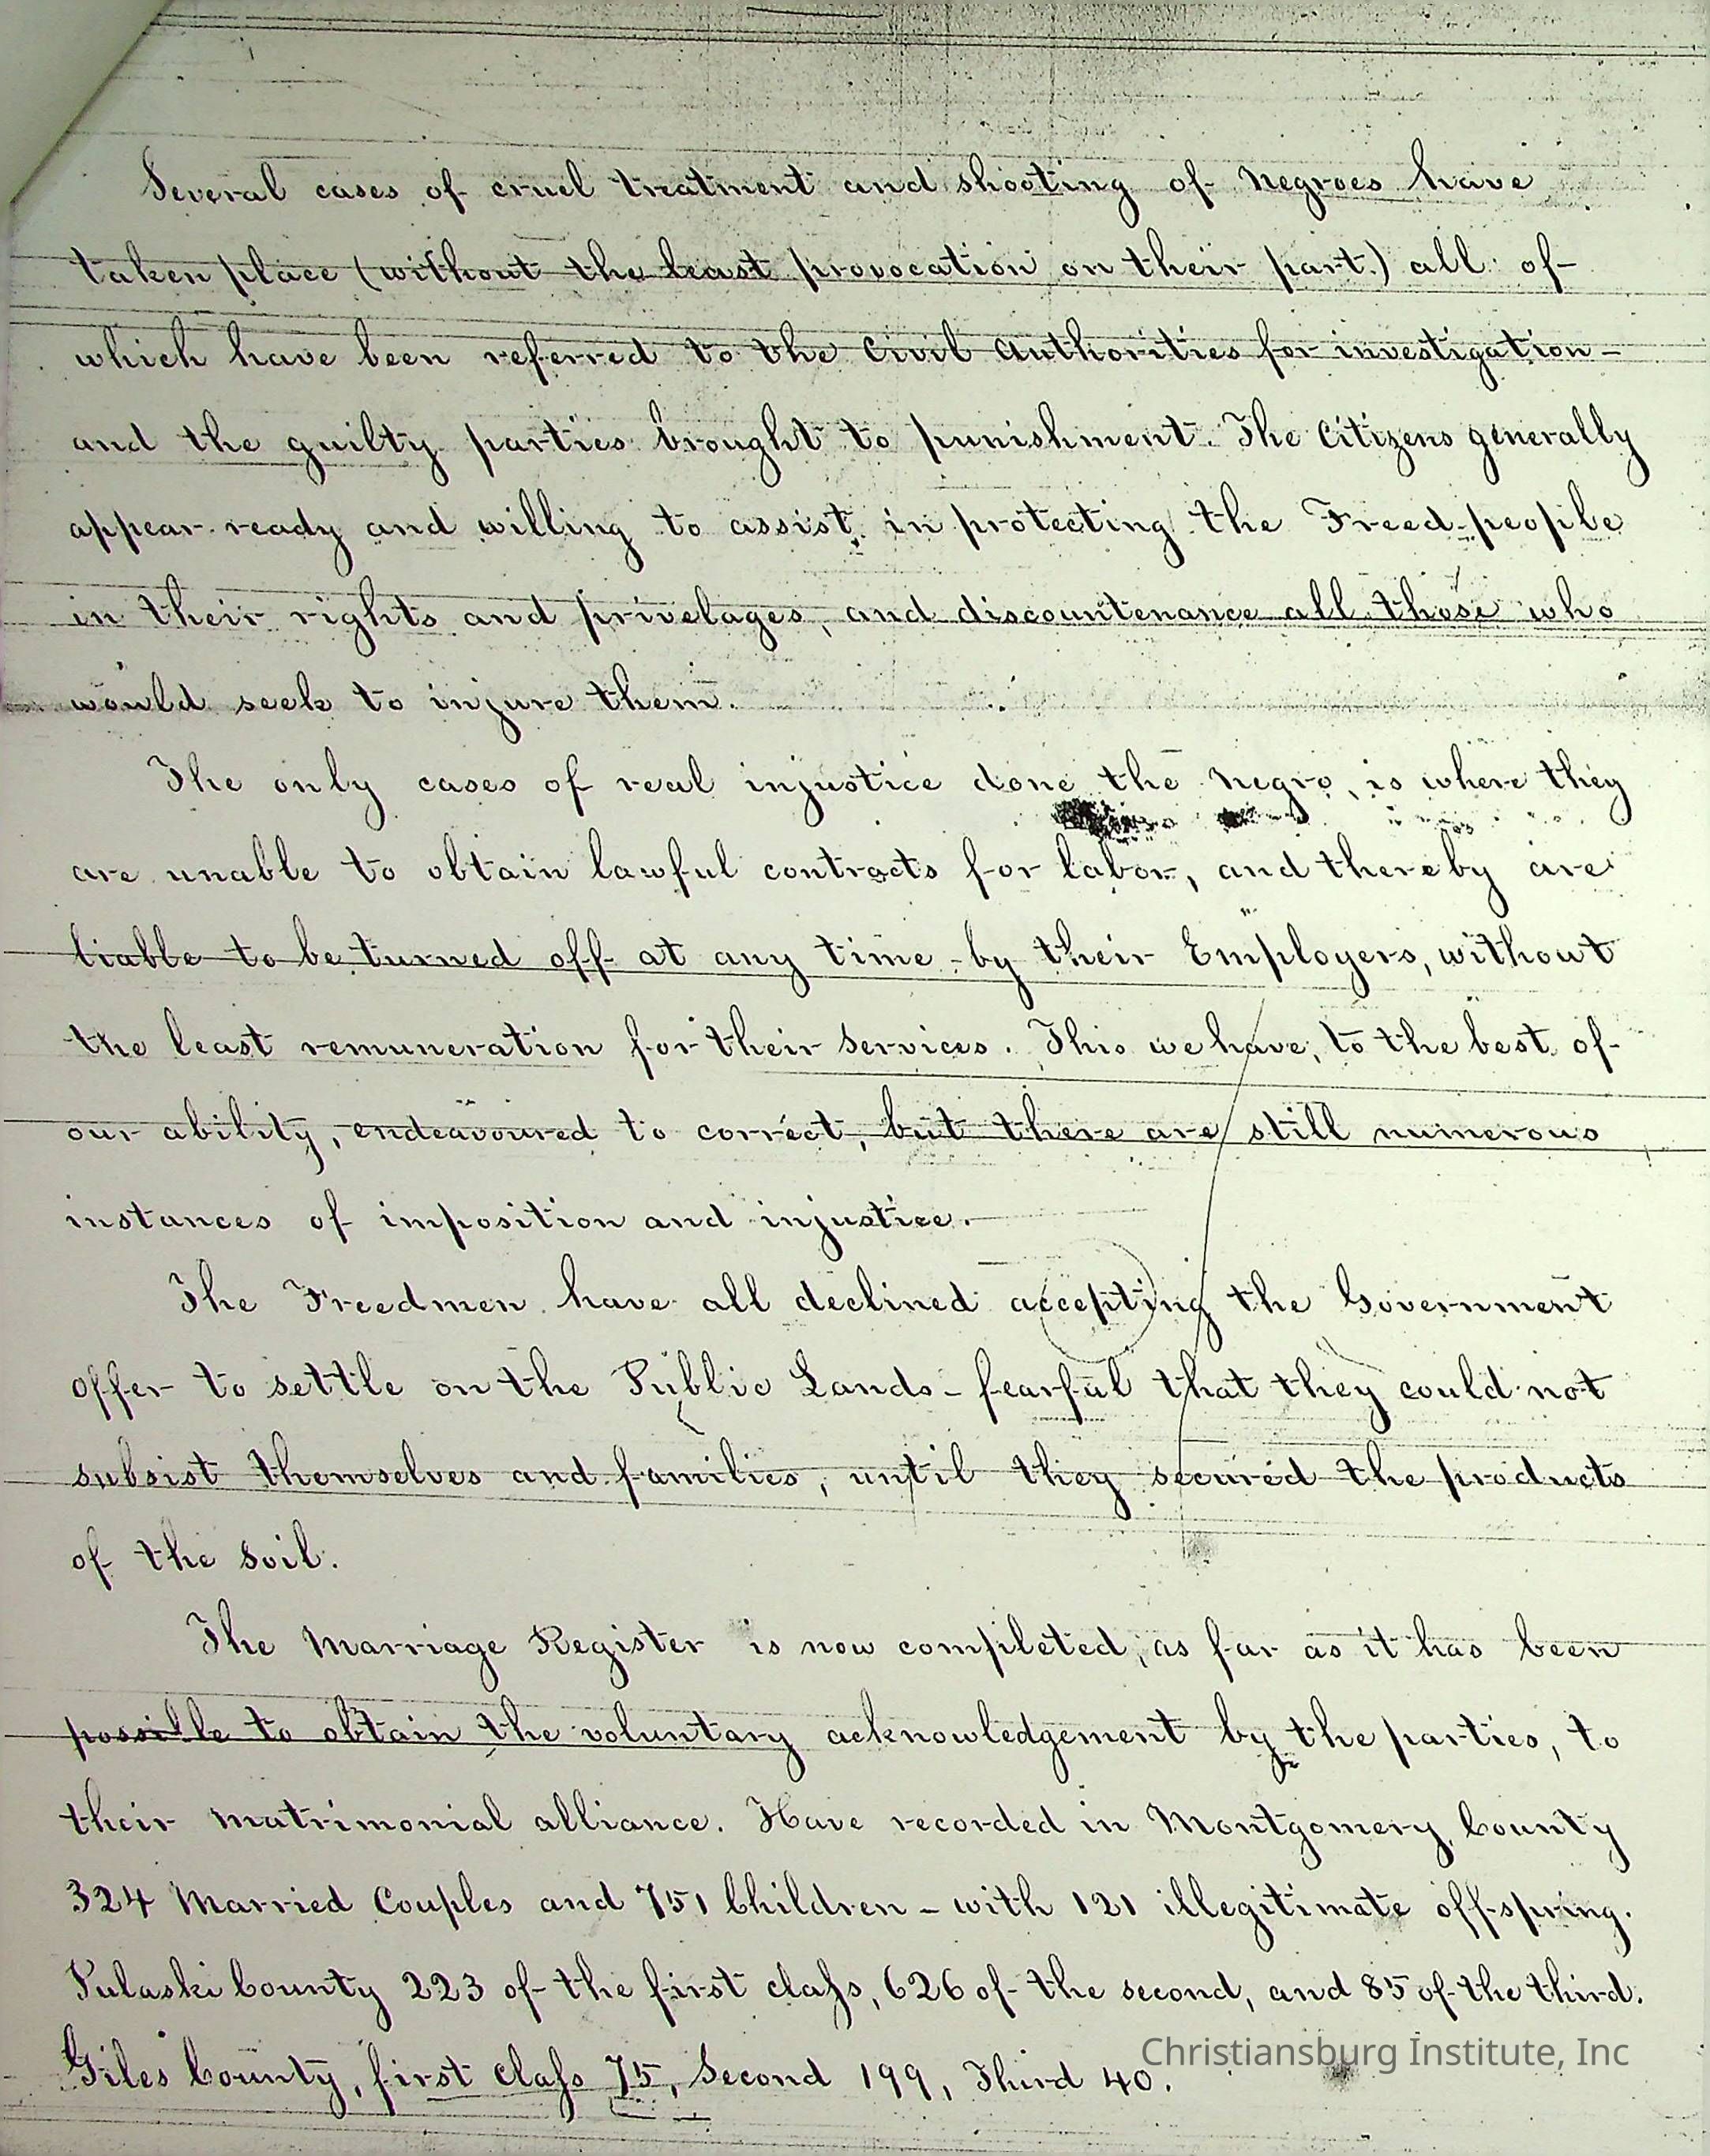 Several cases of cruel treatment and shooting of Negroes have
taken place (without the least provocation on their part.) all of
which have been referred to the Civil Authorities for investigation -
and the guilty parties brought to punishment. The Citizens generally
appear ready and willing to assist, in protecting the Freed-people
in their rights and privelages, and discountenance all those who
would seek to injure them.
The only cases of real injustice done the Negro, is where they
are unable to obtain lawful contracts for labor, and thereby are
liable to be turned off at any time - by their Employers, without
the least remuneration for their Services. This we have, to the best of
our ability, endeavoured to correct, but there are still numerous
instances of imposition and injustice.
The Freedmen have all declined accepting the Government
offer to settle on the Public Lands - fearful that they could not
subsist themselves and families, until they secured the products
of the Soil.
The Marriage Register is now completed, as far as it has been
possible to obtain the voluntary acknowledgement by the parties, to
their matrimonial alliance. Have recorded in Montgomery County
324 Married Couples and 751 Children - with 121 illegitimate off-spring.
Pulaski County 223 of the first class, 626 of the second, and 85 of the third.
Giles County, first Class 75, Second 199, Third 40.
Christiansburg Institute, Inc